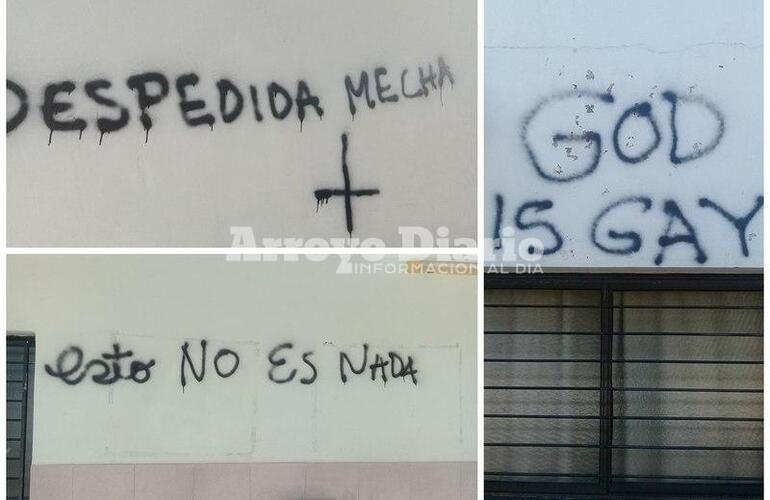 DESPEDIDA MECHA
GOD
IS GAY
Arroyo Diario
INFORMACION AL DIA
esto NO ES NADA